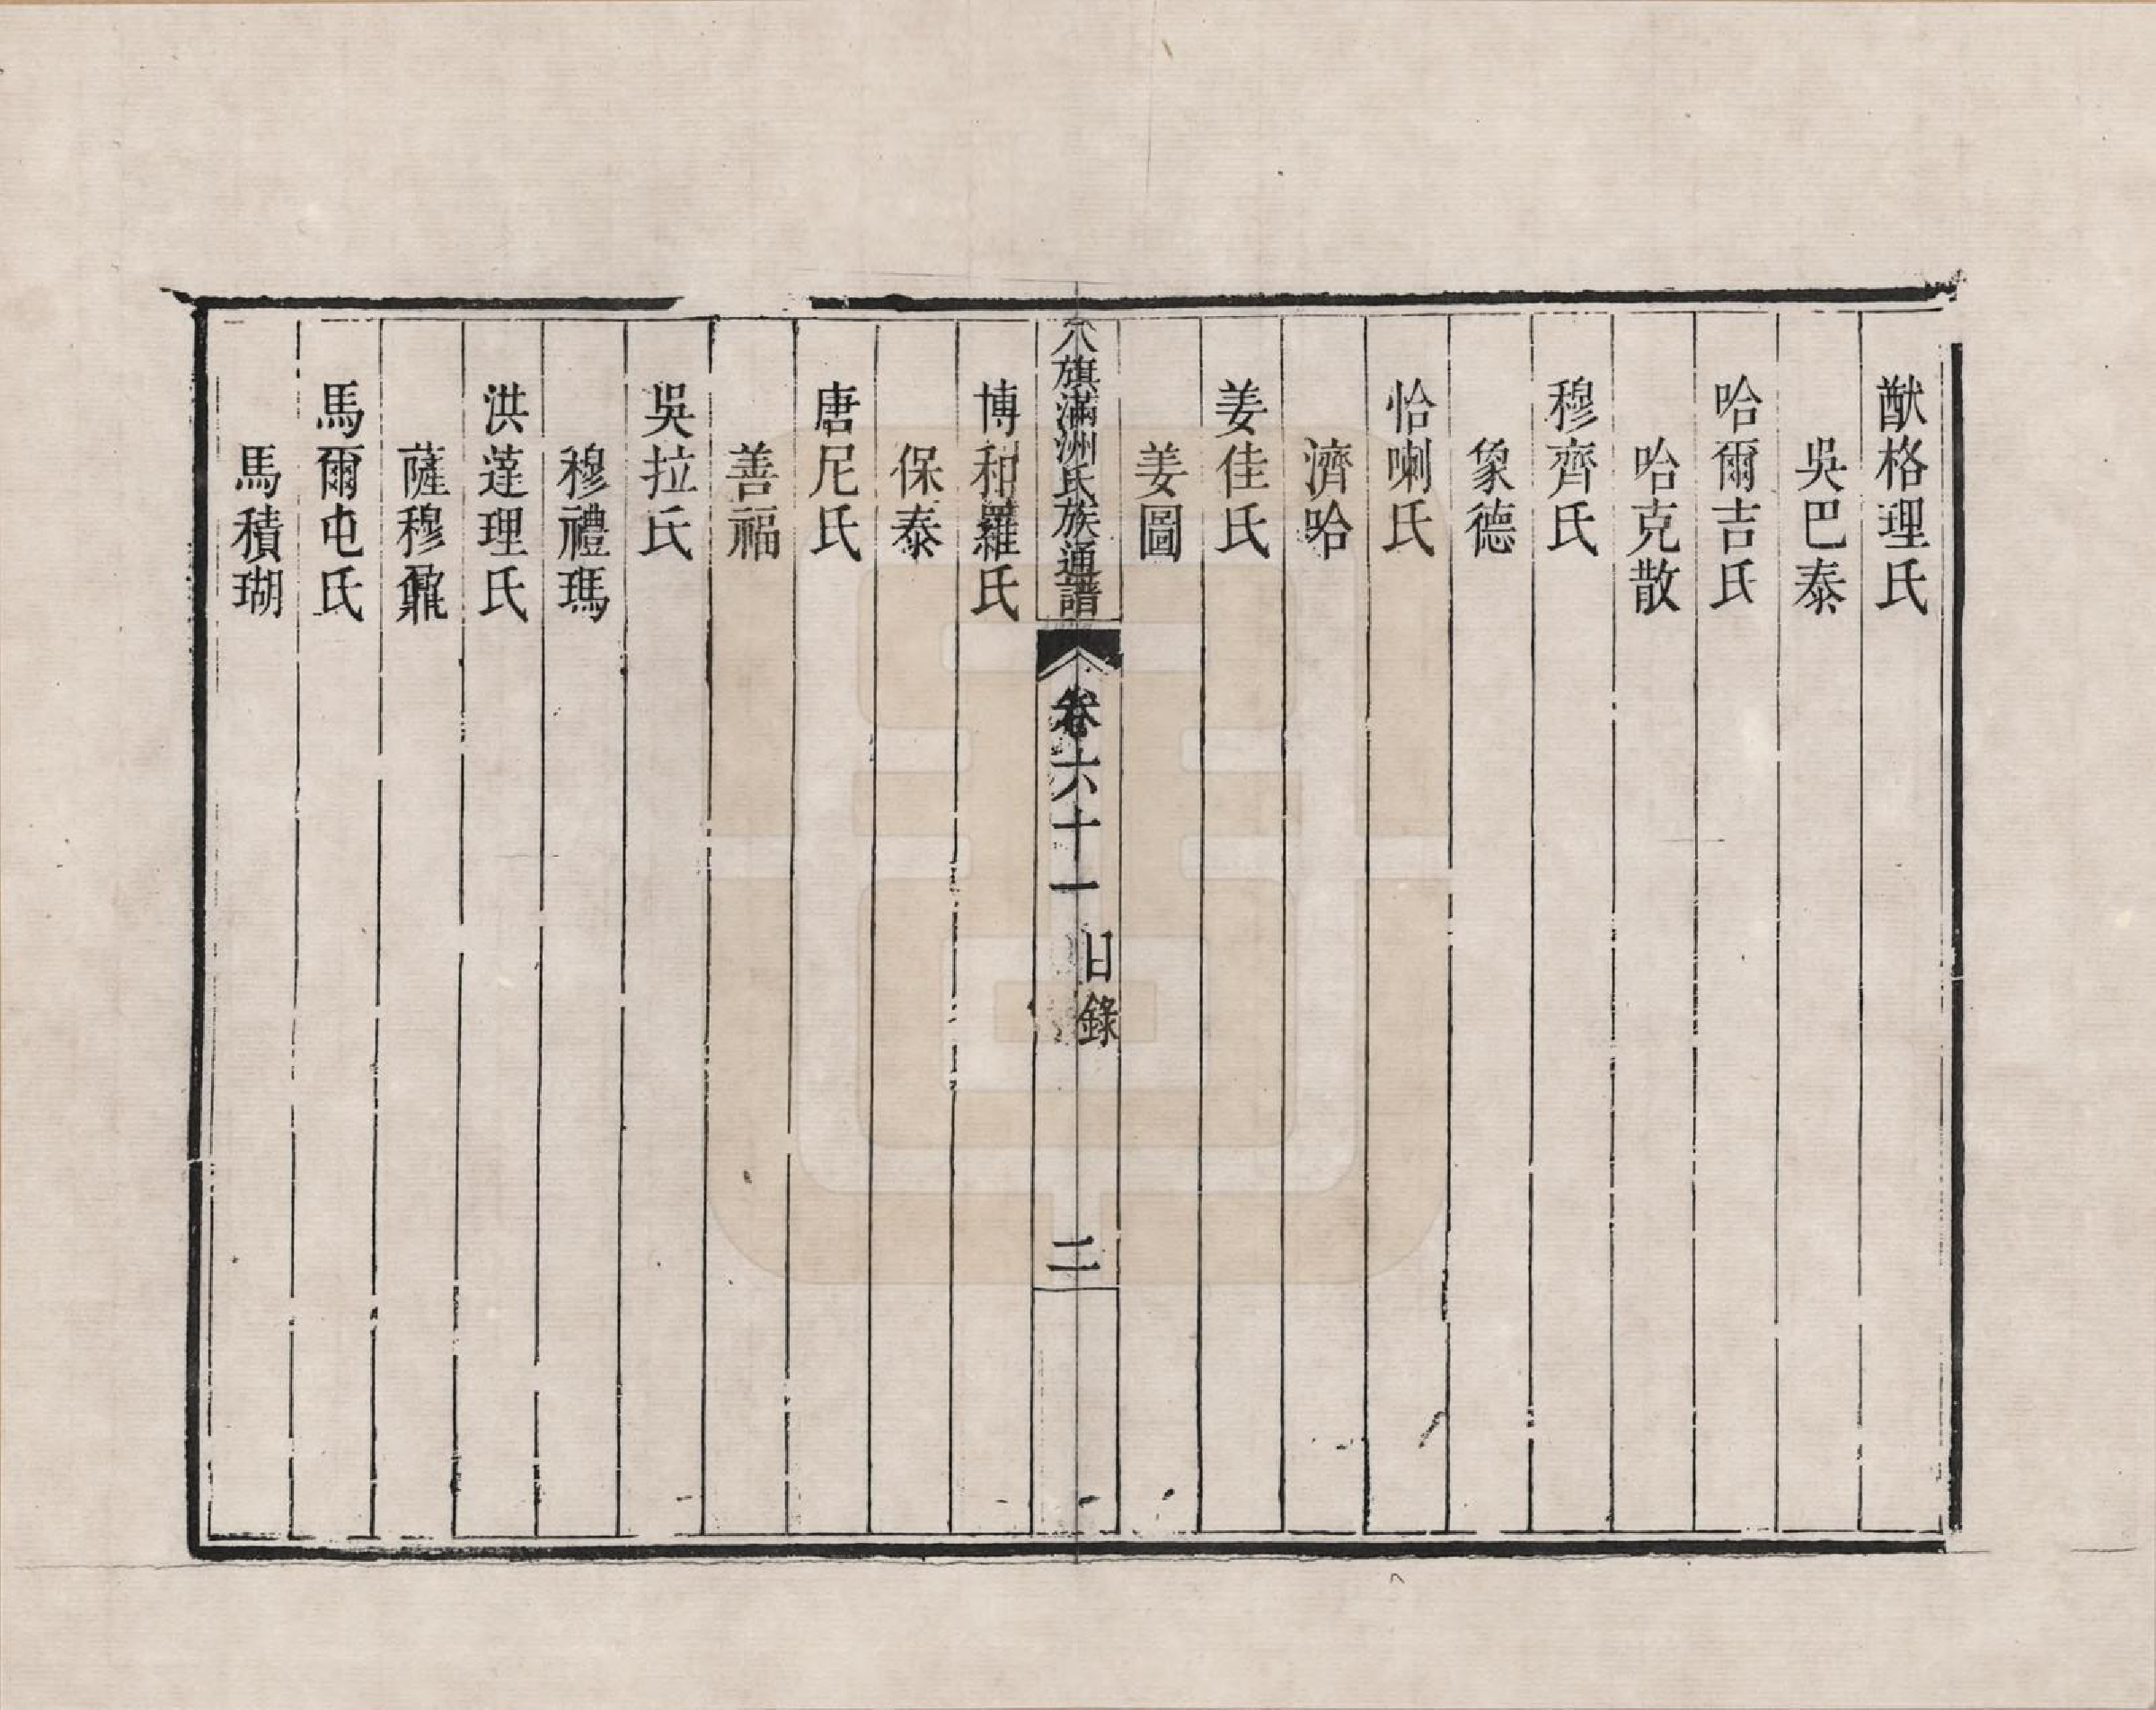 猷格理氏
吳巴泰
哈爾吉氏
哈克散
穆齊氏
象德
恰喇氏
濟哈
姜佳氏
姜圖
八旗滿洲氏族通譜
卷六十一
目錄
二
博和羅氏
保泰
唐尼氏
善福
吳拉氏
穆禮瑪
洪薘理氏
薩穆鼐
馬爾屯氏
馬積瑚